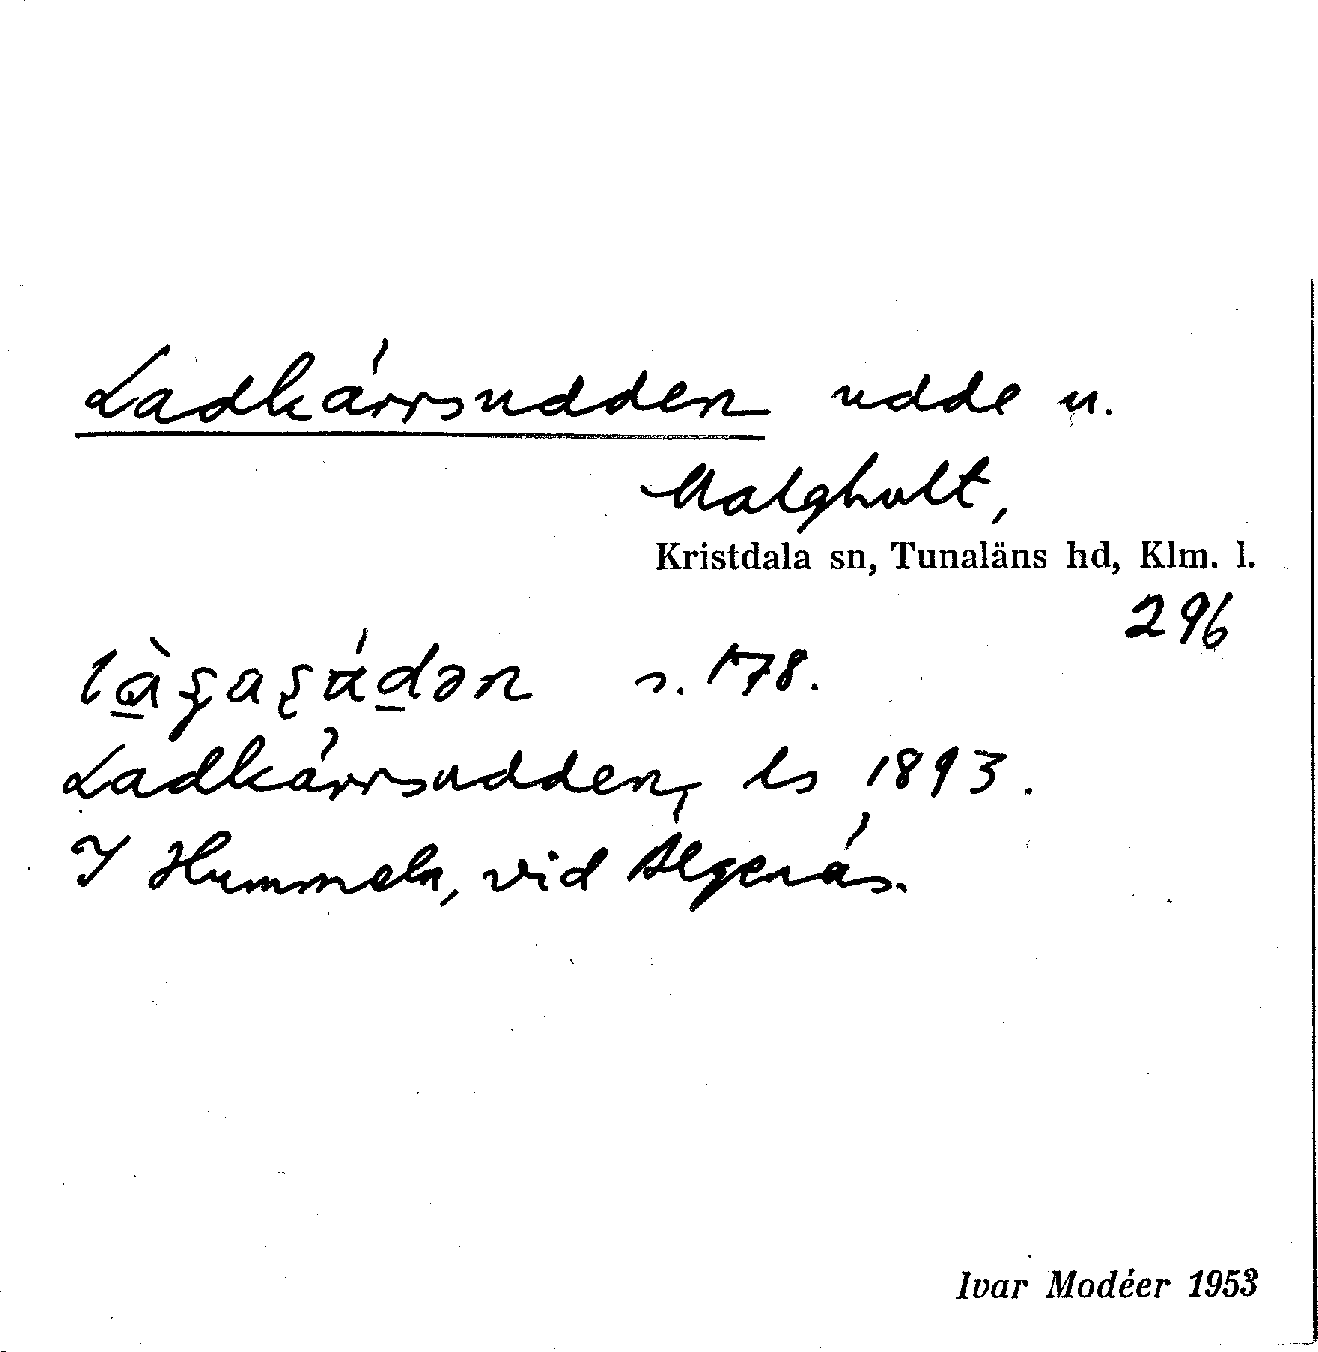 Ladkärrsudden udde u.
Malghult,
Kristdala sn, Tunaläns hd, Klm. l.
296
s. 178.
Ladkärrsudden, ls 1893.
I Hummeln, vid Älgenäs.
Ivar Modéer 1953